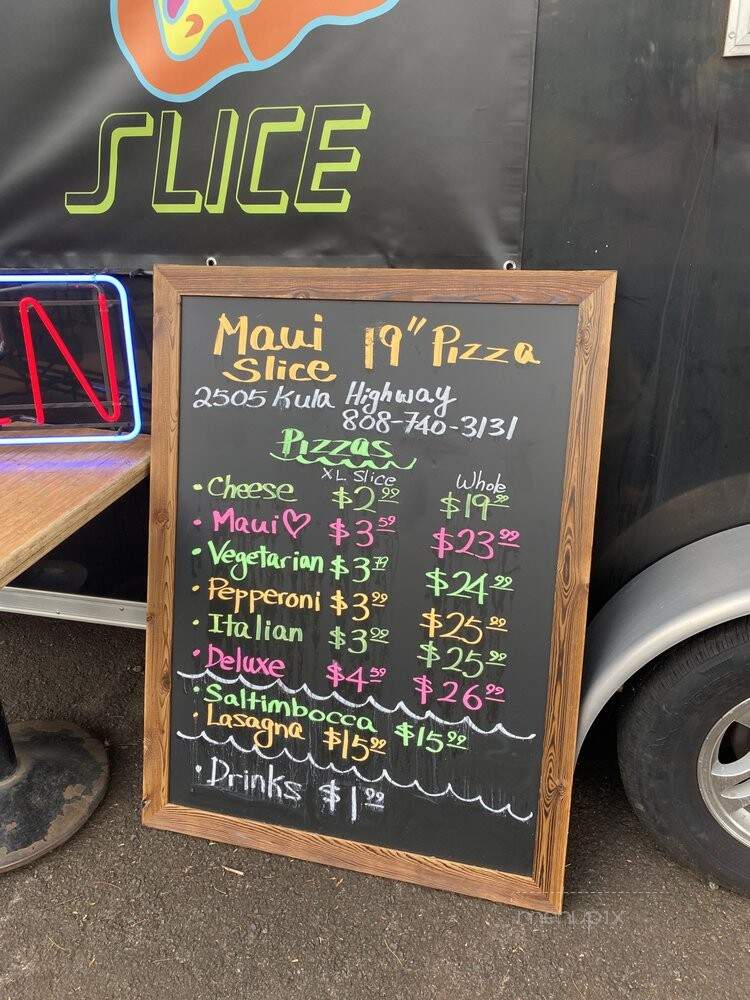 SLICE
N
Maui Slice 19" Pizza
2505 Kula Highway
808-740-3131
Pizzas
XL Slice Whole
• Cheese $2.99 $19.99
• Maui♡ $3.59 $23.99
• Vegetarian $3.79 $24.99
• Pepperoni $3.99 $25.99
• Italian $3.99 $25.99
• Deluxe $4.59 $26.99
• Saltimbocca $15.99
• Lasagna $15.99
• Drinks $1.99
menupix